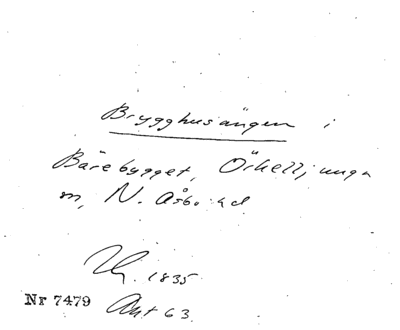 Brygghusängen i
Bårebygget, Örkelljunga
m, N. Åsbo hd
Th. 1835
Nr 7479 Akt 63